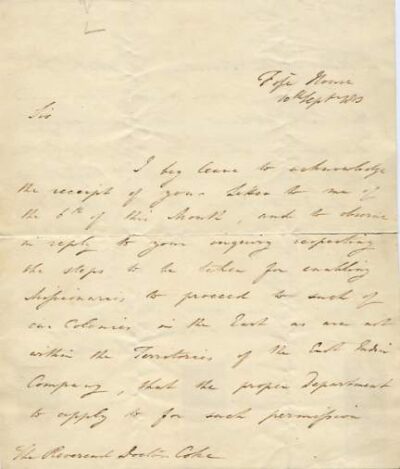 House
10th Sept 1813
Sir
I beg leave to acknowledge
the receipt of your Letter to me of
the 6th of this Month, and to observe
in reply to your inquiry respecting
the steps to be taken for enabling
Missionaries to proceed to such of
our Colonies in the East as are not
within the Territories of the East India
Company, that the proper Department
to apply to for such permission
The Reverend Doctor Coke